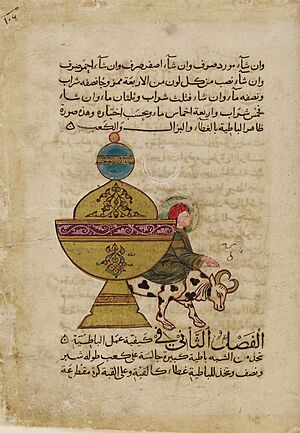 وان شاء مورد صرف وان شاء اصفر صرف وان شاء احمر صرف
وان شاء نصب من كل لون من الاربعة ممزوجا نصفه شراب
ونصفه ماء وان شاء فثلث شراب وثلثان ماء وان شاء
فخمس شراب واربعة اخماس ماء وبحسب اختياره وهذه صورة
ظاهر الباطية بالغطاء والبزال والكعب
الفصل الثاني في كيفية عمل الباطية
تتخذ من الشبه باطية كبيرة جالسة على كعب طوله شبر
ونصف ويتخذ للباطية غطاء كالقبة وعلى القبة كرة مقطوعة